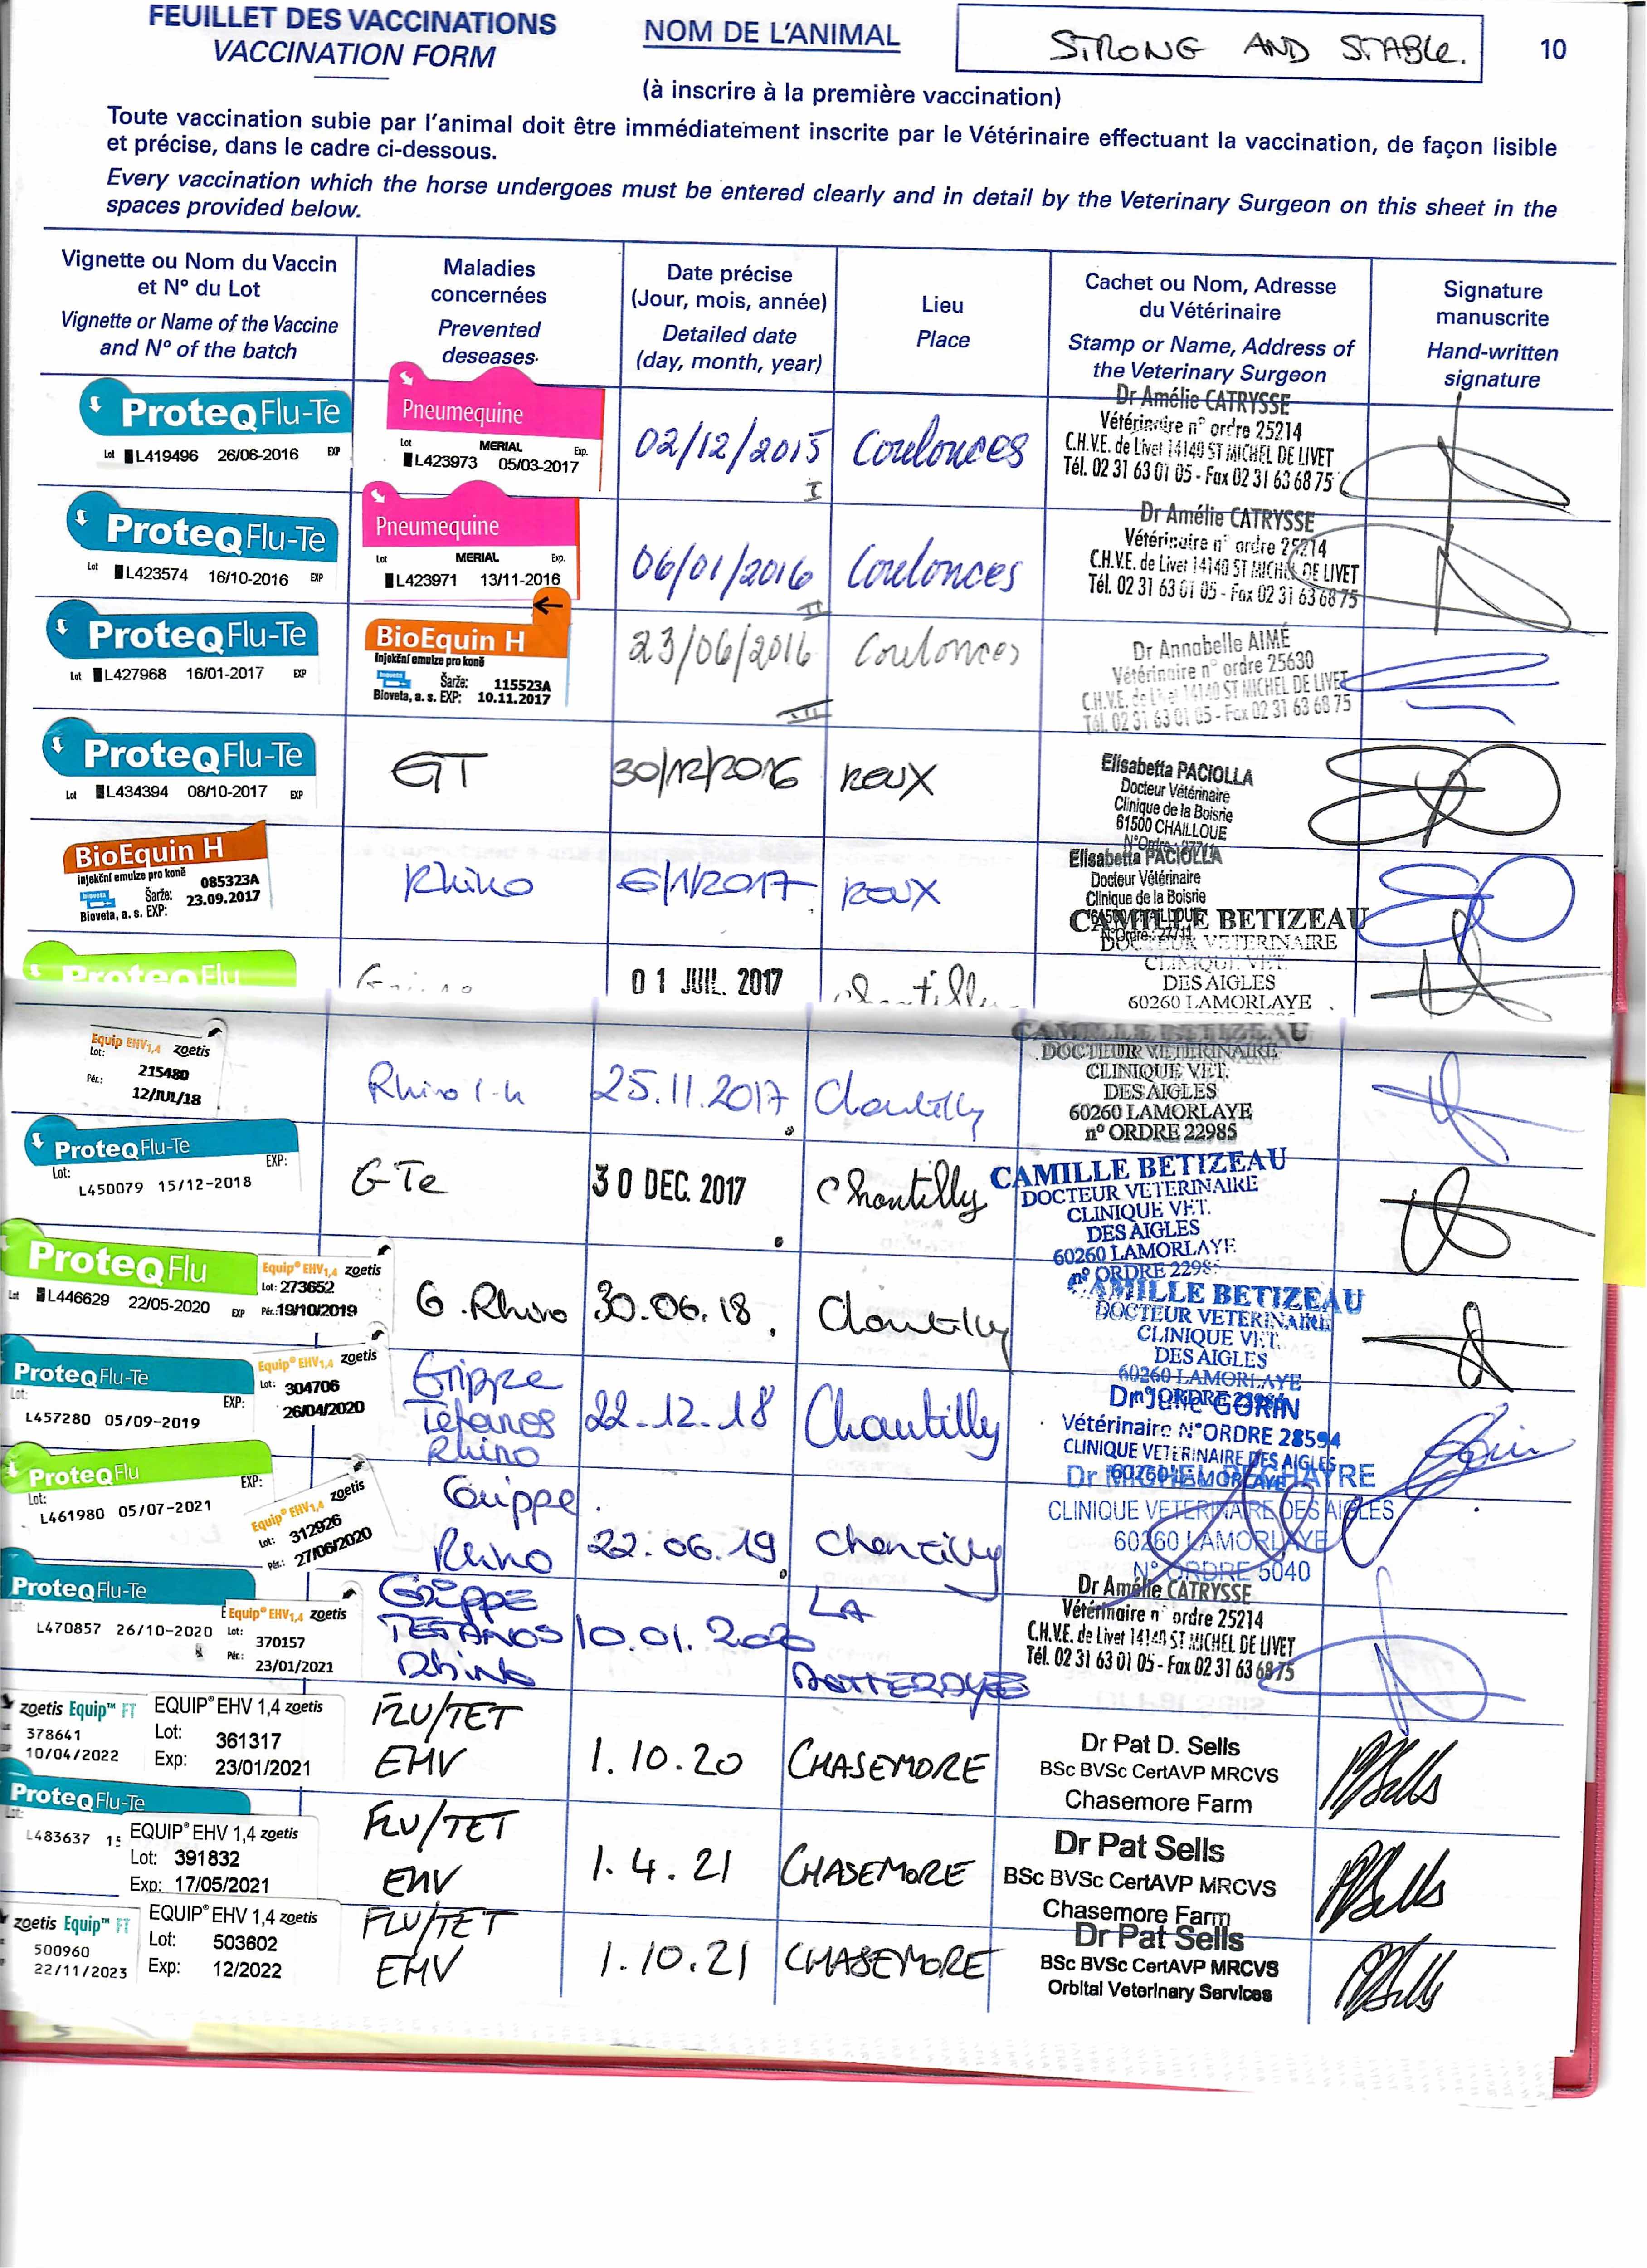 FEUILLET DES VACCINATIONS
VACCINATION FORM
NOM DE L'ANIMAL
STRONG AND STABLE.
10
(à inscrire à la première vaccination)
Toute vaccination subie par l'animal doit être immédiatement inscrite par le Vétérinaire effectuant la vaccination, de façon lisible
et précise, dans le cadre ci-dessous.
Every vaccination which the horse undergoes must be entered clearly and in detail by the Veterinary Surgeon on this sheet in the
spaces provided below.
Vignette ou Nom du Vaccin
et N° du Lot
Vignette or Name of the Vaccine
and N° of the batch
Maladies
concernées
Prevented
deseases
Date précise
(Jour, mois, année)
Detailed date
(day, month, year)
Lieu
Place
Cachet ou Nom, Adresse
du Vétérinaire
Stamp or Name, Address of
the Veterinary Surgeon
Signature
manuscrite
Hand-written
signature
ProteqFlu-Te
Lot L419496 26/06-2016 EXP
Pneumequine
Lot MERIAL Exp.
L423973 05/03-2017
02/12/2015
I
Coulonces
Dr Amélie CATRYSSE
Vétérinaire n° ordre 25214
C.H.V.E. de Livet 14140 ST MICHEL DE LIVET
Tél. 02 31 63 01 05 - Fax 02 31 63 68 75
ProteqFlu-Te
Lot L423574 16/10-2016 EXP
Pneumequine
Lot MERIAL Exp.
L423971 13/11-2016
06/01/2016
II
Coulonces
Dr Amélie CATRYSSE
Vétérinaire n° ordre 25214
C.H.V.E. de Livet 14140 ST MICHEL DE LIVET
Tél. 02 31 63 01 05 - Fax 02 31 63 68 75
ProteqFlu-Te
Lot L427968 16/01-2017 EXP
BioEquin H
Injekční emulze pro koně
bioveta Šarže: 115523A
Bioveta, a. s. EXP: 10.11.2017
23/06/2016
III
Coulonces
Dr Annabelle AIMÉ
Vétérinaire n° ordre 25630
C.H.V.E. de Livet 14140 ST MICHEL DE LIVET
Tél. 02 31 63 01 05 - Fax 02 31 63 68 75
ProteqFlu-Te
Lot L434394 08/10-2017 EXP
GT
30/12/2016
ROUX
Elisabetta PACIOLLA
Docteur Vétérinaire
Clinique de la Boisrie
61500 CHAILLOUE
BioEquin H
Injekční emulze pro koně
bioveta Šarže: 085323A
Bioveta, a. s. EXP: 23.09.2017
Rhino
6/1/2017
ROUX
Elisabetta PACIOLLA
Docteur Vétérinaire
Clinique de la Boisrie
ProteqFlu
01 JUIL. 2017
Chantilly
CAMILLE BETIZEAU
DOCTEUR VETERINAIRE
CLINIQUE VET.
DES AIGLES
60260 LAMORLAYE
Equip EHV1,4 zoetis
Lot: 215480
Pér.: 12/JUL/18
Rhino 1-4
25.11.2017
Chantilly
CAMILLE BETIZEAU
DOCTEUR VETERINAIRE
CLINIQUE VET.
DES AIGLES
60260 LAMORLAYE
n° ORDRE 22985
ProteqFlu-Te
Lot: EXP:
L450079 15/12-2018
GTe
30 DEC. 2017
Chantilly
CAMILLE BETIZEAU
DOCTEUR VETERINAIRE
CLINIQUE VET.
DES AIGLES
60260 LAMORLAYE
n° ORDRE 22985
ProteqFlu
Lot L446629 22/05-2020 EXP
Equip® EHV1,4 zoetis
Lot: 273652
Pér.: 19/10/2019
G.Rhino
30.06.18.
Chantilly
CAMILLE BETIZEAU
DOCTEUR VETERINAIRE
CLINIQUE VET.
DES AIGLES
60260 LAMORLAYE
ProteqFlu-Te
Lot: EXP:
L457280 05/09-2019
Equip® EHV1,4 zoetis
Lot: 304706
26/04/2020
Grippe
Tetanos
Rhino
22-12-18
Chantilly
Dr Julie GORIN
Vétérinaire N°ORDRE 28594
CLINIQUE VETERINAIRE DES AIGLES
60260 LAMORLAYE
ProteqFlu
Lot: EXP:
L461980 05/07-2021
Equip® EHV1,4 zoetis
Lot: 312926
Pér.: 27/06/2020
Grippe.
Rhino
22.06.19
Chantilly
CLINIQUE VETERINAIRE DES AIGLES
60260 LAMORLAYE
N° ORDRE 5040
ProteqFlu-Te
Lot:
L470857 26/10-2020
Equip® EHV1,4 zoetis
Lot: 370157
Pér.: 23/01/2021
GRIPPE
TETANOS
Rhino
10.01.2020
LA
Dr Amélie CATRYSSE
Vétérinaire n° ordre 25214
C.H.V.E. de Livet 14140 ST MICHEL DE LIVET
Tél. 02 31 63 01 05 - Fax 02 31 63 68 75
zoetis Equip™ FT
378641
10/04/2022
EQUIP® EHV 1,4 zoetis
Lot: 361317
Exp: 23/01/2021
FLU/TET
EHV
1.10.20
CHASEMORE
Dr Pat D. Sells
BSc BVSc CertAVP MRCVS
Chasemore Farm
ProteqFlu-Te
Lot:
L483637 15
EQUIP® EHV 1,4 zoetis
Lot: 391832
Exp: 17/05/2021
FLU/TET
EHV
1.4.21
CHASEMORE
Dr Pat Sells
BSc BVSc CertAVP MRCVS
Chasemore Farm
zoetis Equip™ FT
500960
22/11/2023
EQUIP® EHV 1,4 zoetis
Lot: 503602
Exp: 12/2022
FLU/TET
EHV
1.10.21
CHASEMORE
Dr Pat Sells
BSc BVSc CertAVP MRCVS
Orbital Veterinary Services